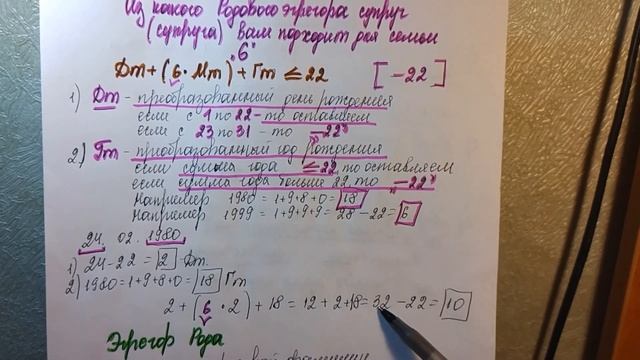 Из какого Родового эгрегора супруг
(супруга) Вам подходит для семьи
"6"
Дт + (6 · Мт) + Гт ≤ 22 [-22]
1) Дт - преобразованный день рождения
если с 1 по 22 - то оставляем
если с 23 по 31 - то "-22"
2) Гт - преобразованный год рождения
если сумма года ≤ 22, то оставляем
если сумма года больше 22, то "-22"
Например 1980 = 1+9+8+0 = 18
Например 1999 = 1+9+9+9 = 28 - 22 = 6
24. 02. 1980
1) 24-22 = 2 Дт.
2) 1980 = 1+9+8+0 = 18 Гт
2 + (6 · 2) + 18 = 12 + 2 + 18 = 32 - 22 = 10
Эгрегор Рода